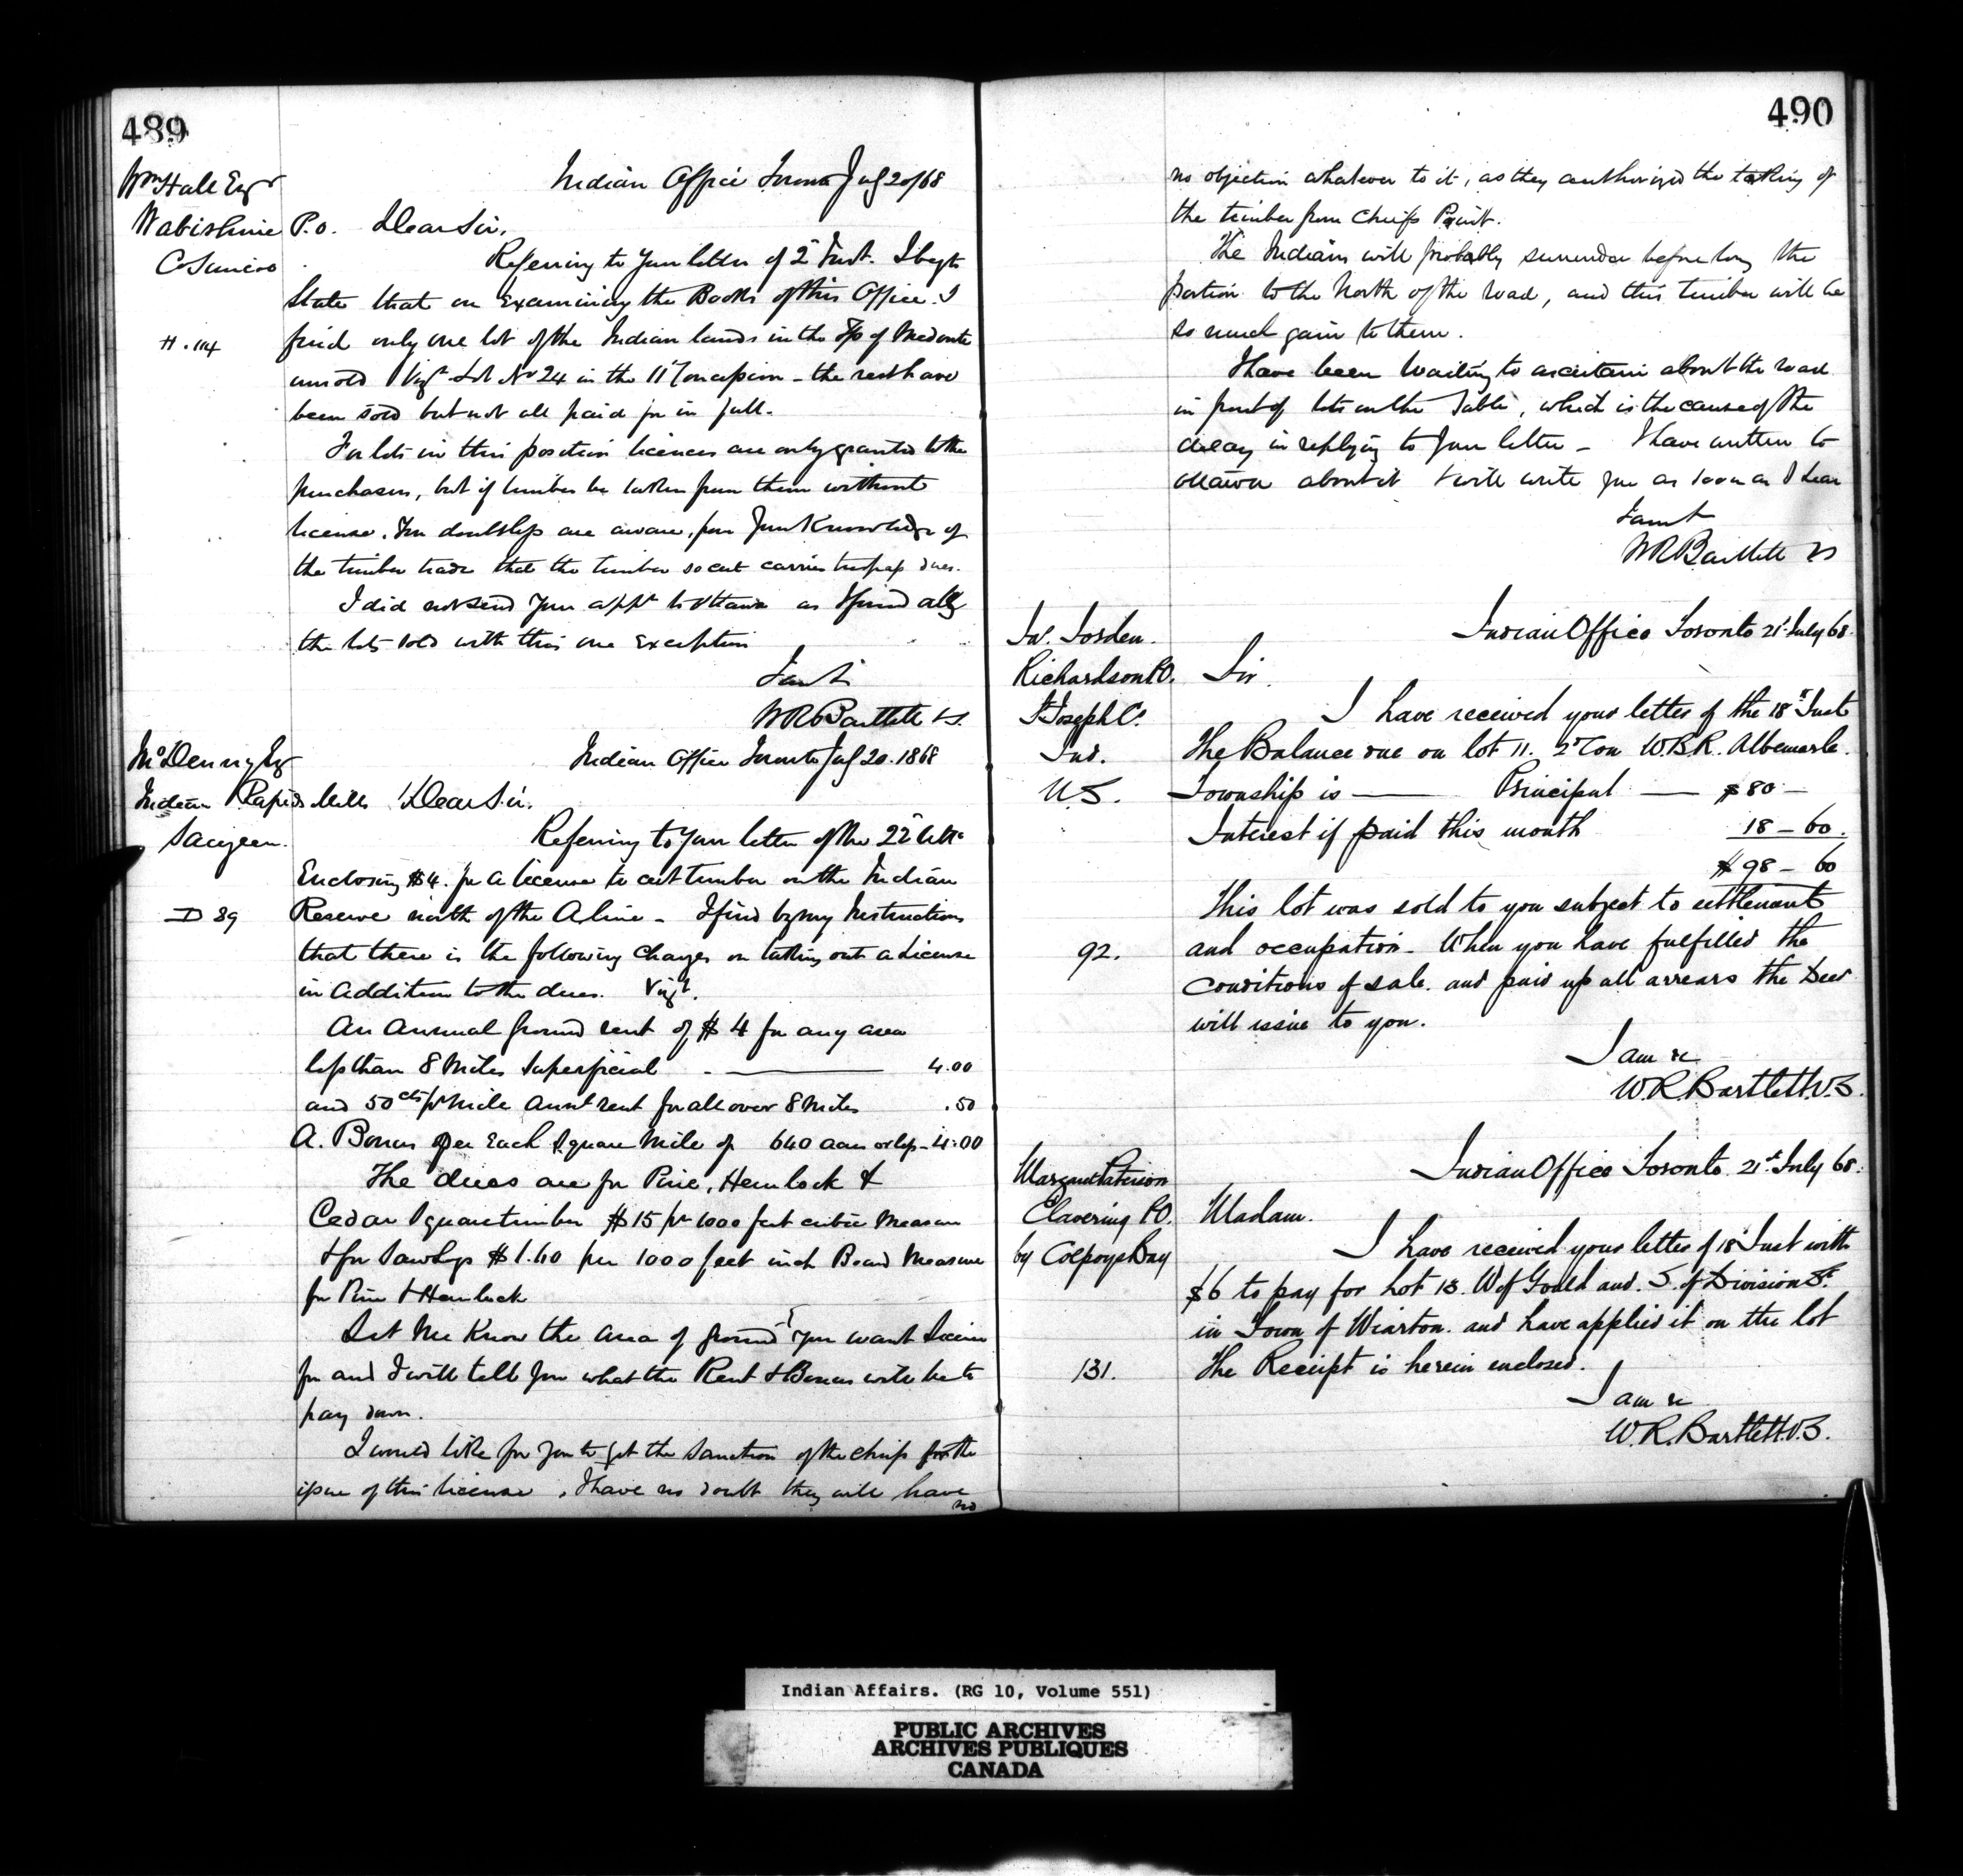 489
Wm Hall Esqr
Wabishine P.O.
Co Simcoe
H. 114
Indian Office Toronto July 20/68
Dear Sir,
Referring to your letter of 2d Inst. I beg to
State that on Examining the Books of this Office I
find only one lot of the Indian lands in the Tp of Medonte
unsold Vizt Lot No 24 in the 11th Concession - the rest have
been sold but not all paid for in full.
For lots in this position licences are only granted to the
purchasers, but if timber be taken from them without
license, You doubtless are aware, from your Knowledge of
the timber trade that the timber so cut carries trespass dues.
I did not send your appn to Ottawa as I find all
the lots sold with this one Exception
I am &
WR Bartlett VS.
Mc Denny Esq
Indian Rapids Mills
Saugeen.
D 89
Indian Office Toronto July 20. 1868
Dear Sir.
Referring to your letter of the 22d ulto
Enclosing $4. for a license to cut timber on the Indian
Reserve north of the A line - I find by my Instructions
that there is the following charges on taking out a License
in addition to the dues. Vizt.
An Annual ground rent of $4 for any area
less than 8 Miles Superficial - 4.00
and 50 cts pr Mile annl rent for all over 8 Miles .50
A. Bonus of on Each Square Mile of 640 acres or less - 4.00
The dues are for Pine, Hemlock &
Cedar Square timber $15 pr 1000 feet cubic Measure
& for Sawlogs $1.60 per 1000 feet inch Board Measure
for Pine & Hemlock
Let Me Know the area of ground you want License
for and I will tell you what the Rent & Bonus will be to
pay down.
I would like for you to get the Sanction of the chiefs for the
issue of this license, I have no doubt they will have
no
490
no objection whatever to it, as they authorized the taking of
the timber from Chiefs Point.
The Indians will probably surrender before long the
portion to the North of the road, and this timber will be
so much gain to them.
I have been Waiting to ascertain about the road
in front of lots on the Sable, which is the cause of the
delay in replying to your letter - I have written to
Ottawa about it & will write you as soon as I hear
I am &
WR Bartlett VS
Jn. Josden.
Richardson P.O.
St Joseph Co.
Ind.
U.S.
92.
Indian Office Toronto 21st July 68.
Sir.
I have received your letter of the 18th Inst
The Balance due on lot 11. 2d Con W.B.R. Albemarle.
Township is — Principal — $80 —
Interest if paid this month 18 - 60.
$98 - 60
This lot was sold to you subject to settlement
and occupation. When you have fulfilled the
conditions of sale. and paid up all arrears the Deed
will issue to you.
I am &c
W.R. Bartlett. V.S.
Margaret Paterson
Clavering P.O.
by Colpoys Bay
131.
Indian Office Toronto. 21st July 68.
Madam.
I have received your letter of 18th Inst with
$6 to pay for Lot 13. W of Gould and. S. of Division St.
in Town of Wiarton. and have applied it on the lot
The Receipt is herein enclosed.
I am &c
W.R. Bartlett. V.S.
Indian Affairs. (RG 10, Volume 551)
PUBLIC ARCHIVES
ARCHIVES PUBLIQUES
CANADA